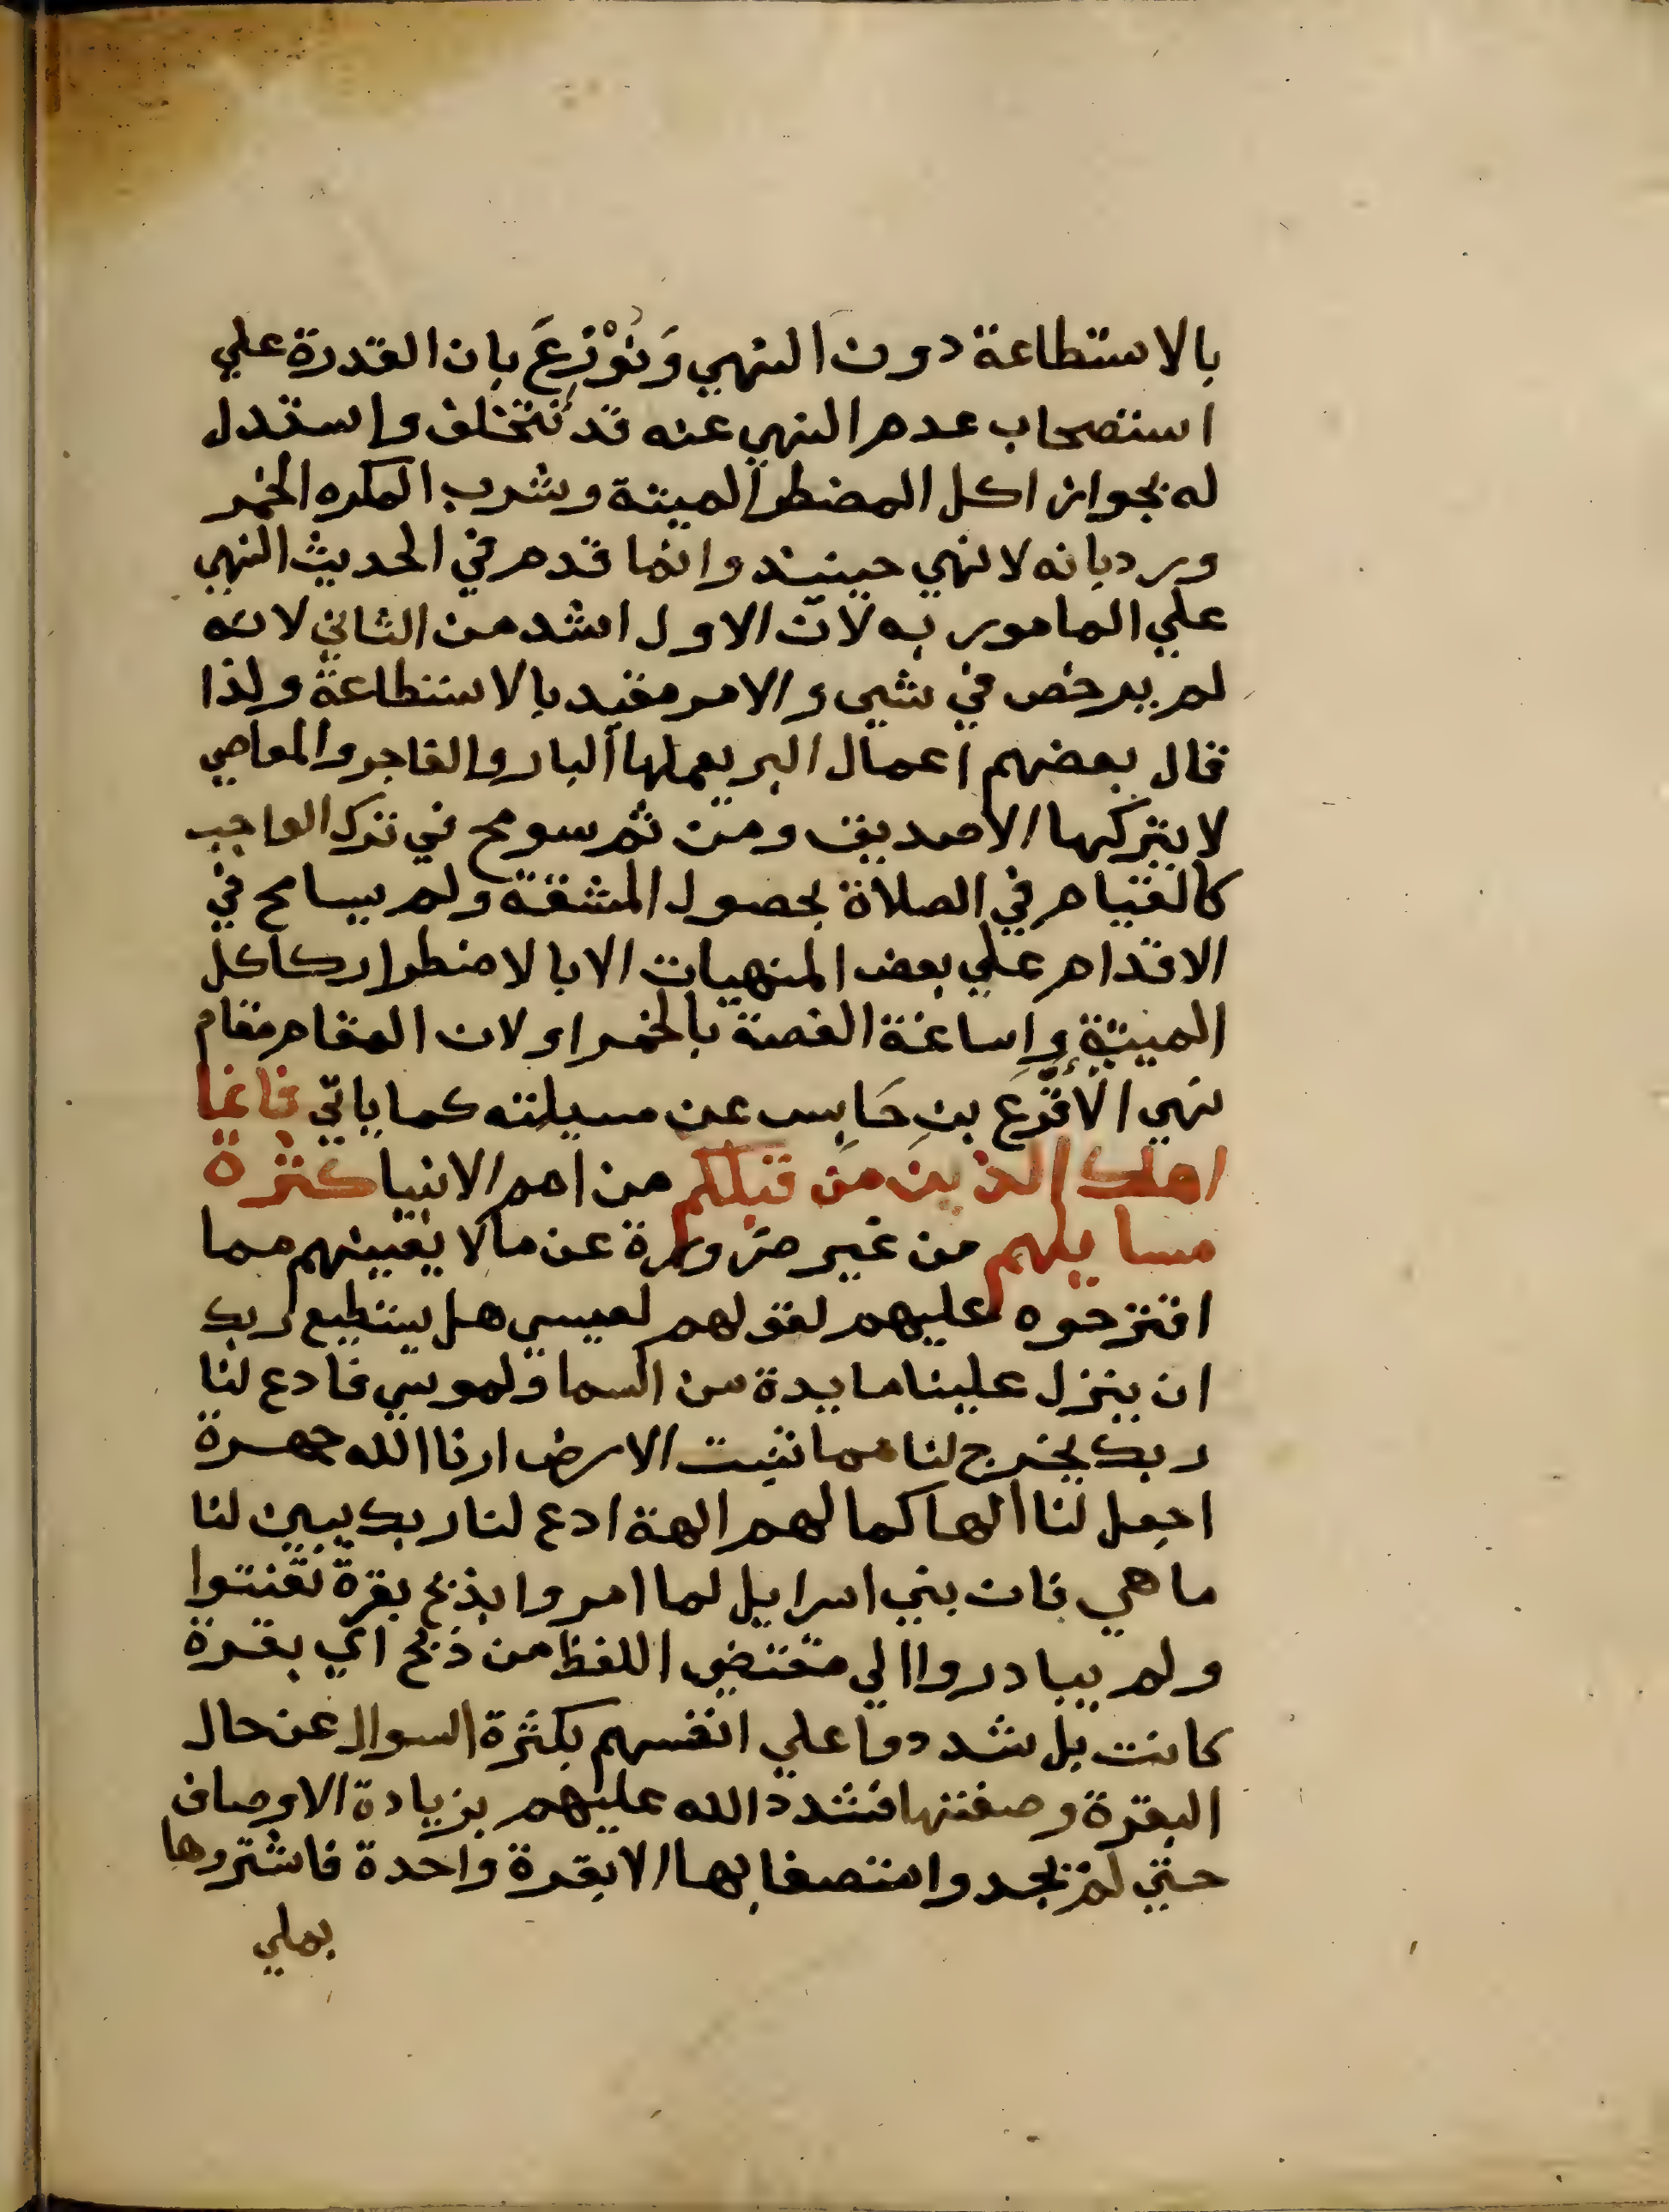 بالاستطاعة دون النهي وَنُوْزِعَ بان القدرة علي
استصحاب عدم النهي عنه قد تتخلف واستدل
له بجواز اكل المضطر الميتة وشرب المكره الخمر
ورد بانه لا نهي حينيذ وانما قدم في الحديث النهي
علي المامور به لان الاول اشد من الثاني لانه
لم يرخص في شيء والامر مقيد بالاستطاعة ولذا
قال بعضهم اعمال البر يعملها البار والفاجر والمعاصي
لا يتركها الا صديق ومن ثم سومح في ترك الواجب
كالقيام في الصلاة لحصول المشقة ولم يسامح في
الاقدام علي بعض المنهيات الا بالاضطرار كاكل
الميتة وإساغة الغصة بالخمر او لان المقام مقام
نهي الأقرَع بنِ حَابِس عن مسيلته كما ياتي فانما
اهلك الذين من قبلكم من امم الانبيا كثرة
مسايلهم من غير ضرورة عن مالا يعنيهم مما
اقترحوه عليهم لقولهم لعيسي هل يستطيع ربك
ان ينزل علينا مايدة من السما ولموسي فادع لنا
ربك يخرج لنا مما تنبت الارض ارنا الله جهرة
اجعل لنا الها كما لهم الهة ادع لنا ربك يبين لنا
ما هي فان بني اسرايل لما امروا بذبح بقرة تعنتوا
ولم يبادروا الي مقتضي اللفظ من ذبح اي بقرة
كانت بل شددوا علي انفسهم بكثرة السوال عن حال
البقرة وصفتها فشدد الله عليهم بزيادة الاوصاف
حتي لم يجدوا متصفا بها الا بقرة واحدة فاشتروها
بملي